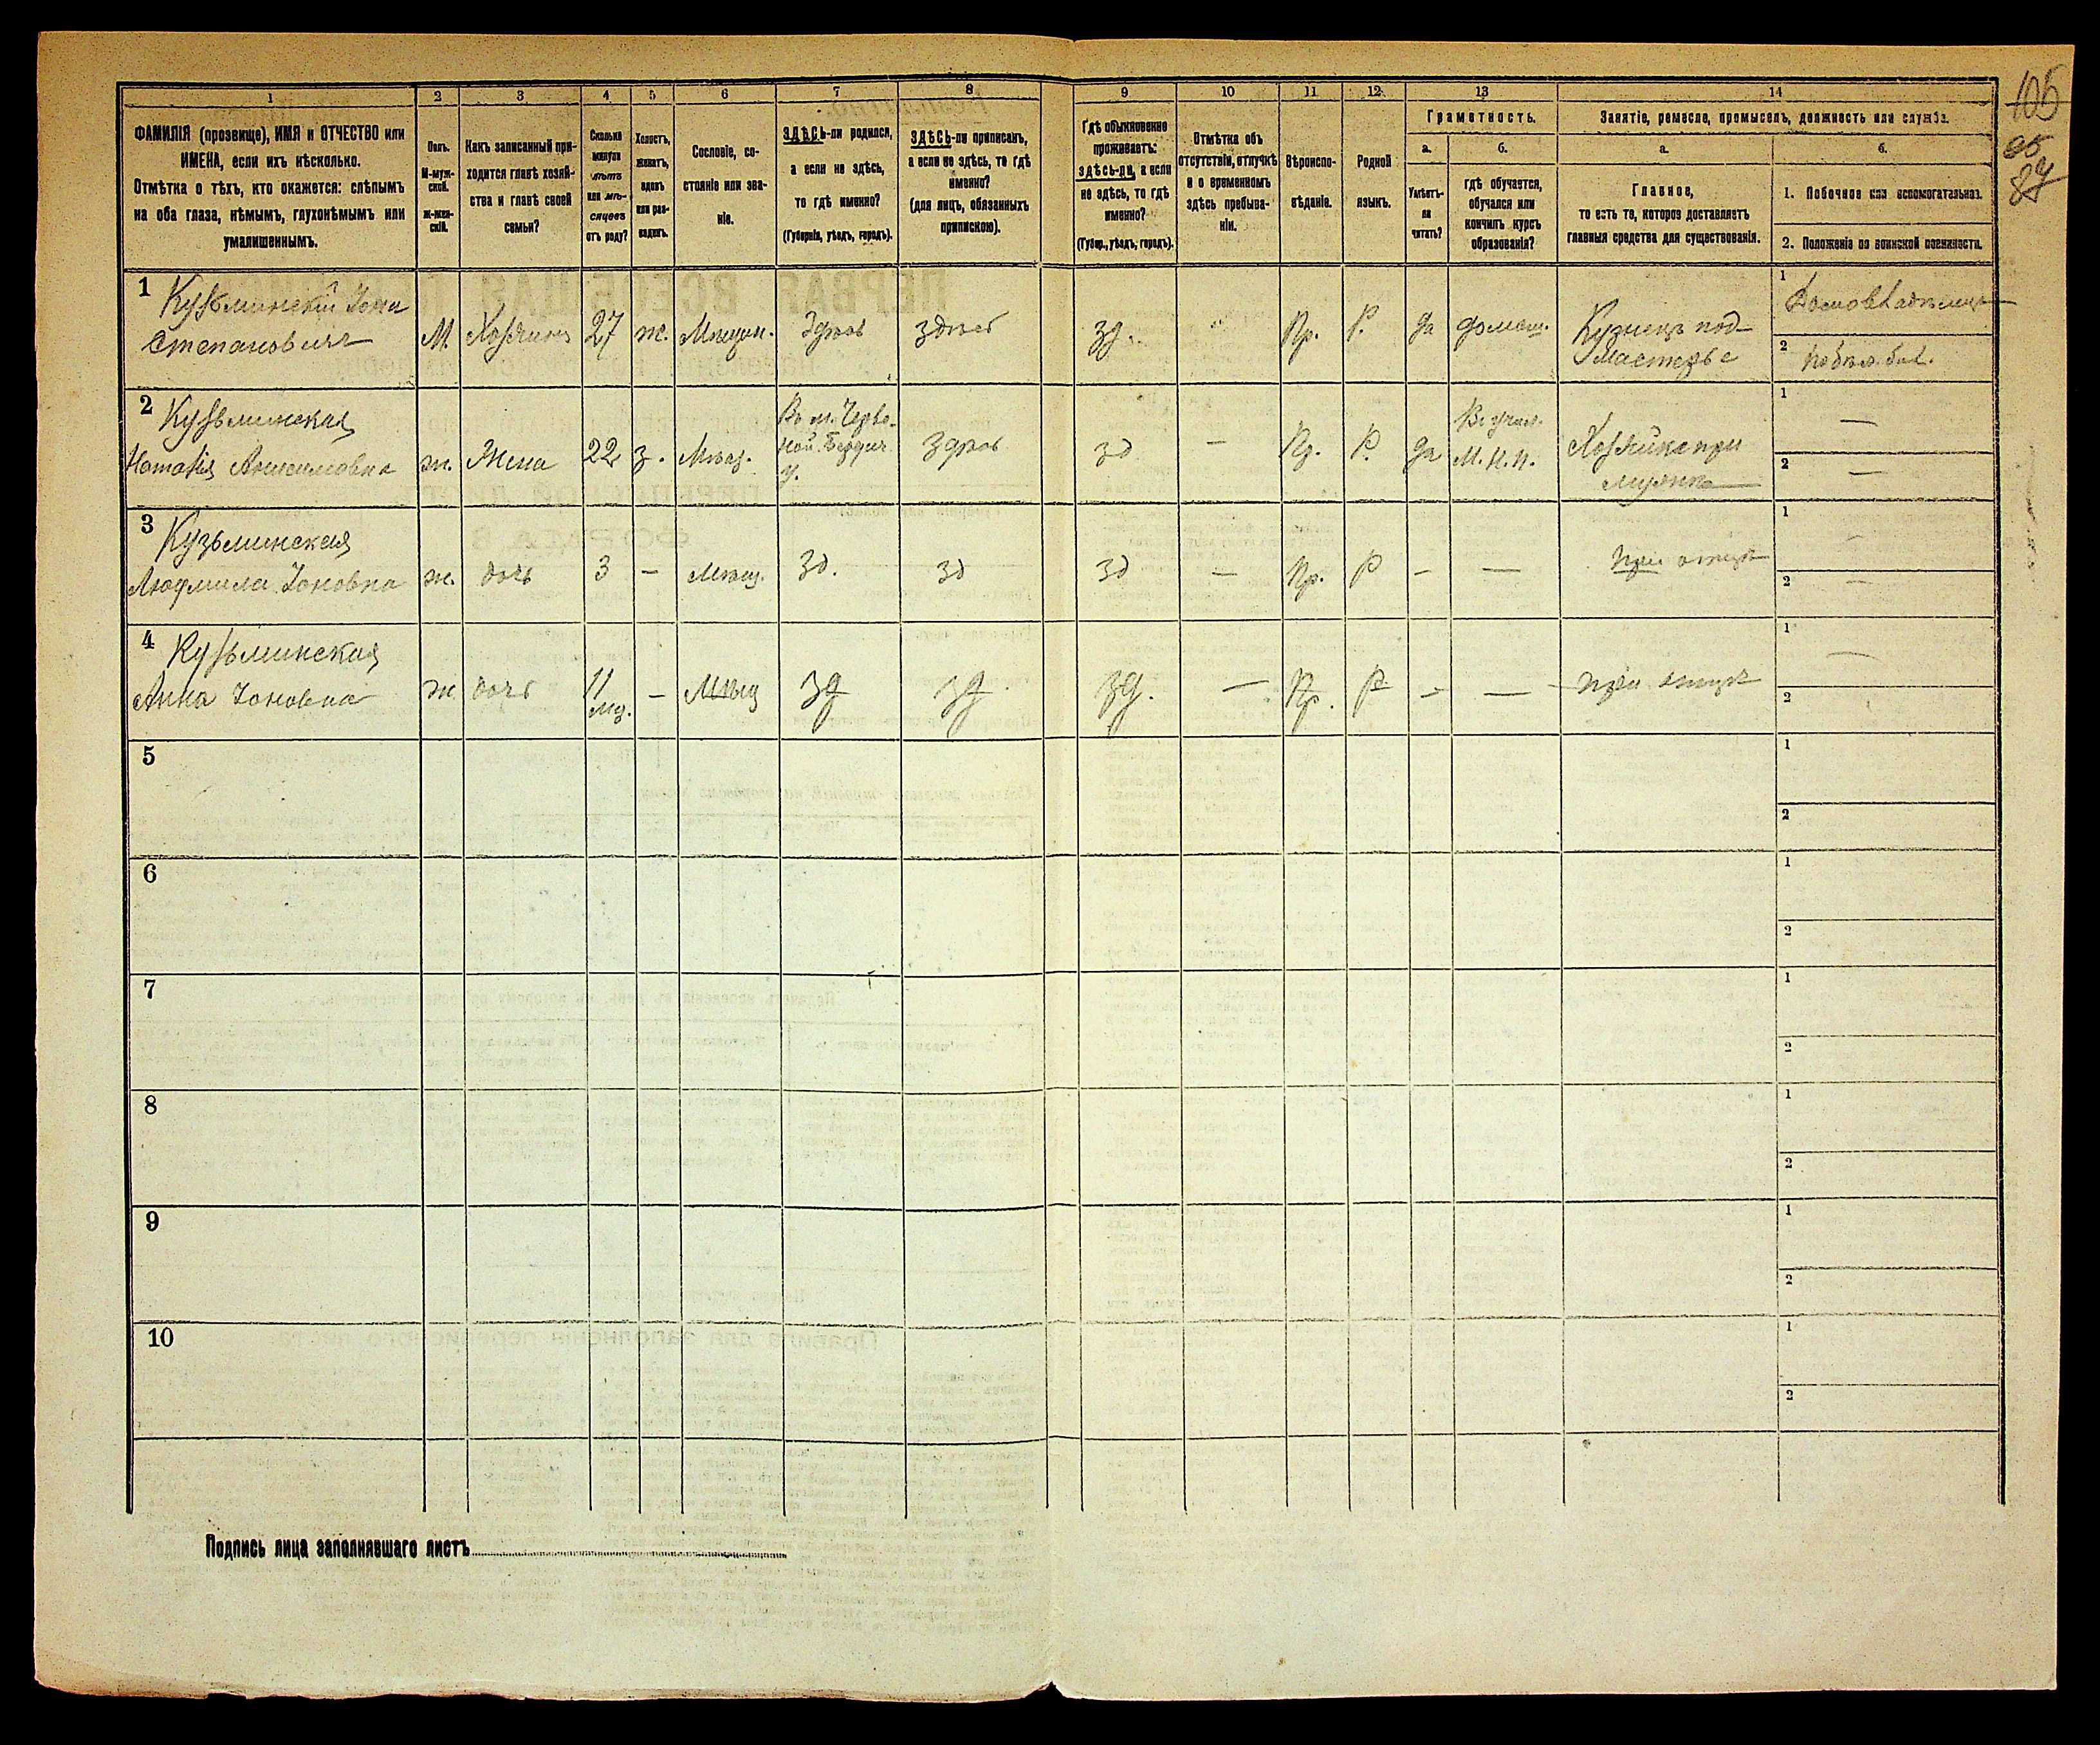 105
95
89
1 2 3 4 5 6 7 8 9 10 11 12 13 14
ФАМИЛІЯ (прозвище), ИМЯ и ОТЧЕСТВО или
ИМЕНА, если ихъ нѣсколько.
Отмѣтка о тѣхъ, кто окажется: слѣпымъ
на оба глаза, нѣмымъ, глухонѣмымъ или
умалишеннымъ.
Полъ.
М-муж-
ской.
ж-жен-
скій.
Какъ записанный при-
ходится главѣ хозяй-
ства и главѣ своей
семьи?
Сколько
минуло
лѣтъ
или мѣ-
сяцевъ
отъ роду?
Холостъ,
женатъ,
вдовъ
или раз-
веденъ.
Сословіе, со-
стояніе или зва-
ніе.
ЗДѢСЬ-ли родился,
а если не здѣсь,
то гдѣ именно?
(Губернія, уѣздъ, городъ).
ЗДѢСЬ-ли приписанъ,
а если не здѣсь, то гдѣ
именно?
(для лицъ, обязанныхъ
припискою).
Гдѣ обыкновенно
проживаетъ:
здѣсь-ли, а если
не здѣсь, то гдѣ
именно?
(Губер., уѣздъ, городъ).
Отмѣтка объ
отсутствіи, отлучкѣ
и о временномъ
здѣсь пребыва-
ніи.
Вѣроиспо-
вѣданіе.
Родной
языкъ.
Грамотность.
а.
Умѣетъ-
ли
читать?
б.
гдѣ обучается,
обучался или
кончилъ курсъ
образованія?
Занятіе, ремесло, промыселъ, должность или служба.
а.
Главное,
то есть то, которое доставляетъ
главныя средства для существованія.
б.
1. Побочное или вспомогательное.
2. Положеніе по воинской повинности.
1 Кузьминскій Іона
Степановичъ
М. Хозяинъ 27 ж. Мѣщан. Здѣсь здѣсь зд. " Пр. Р. да домаш. Кузнецъ под-
мастерье
1 Домовладѣлецъ
2
2 Кузьминская
Наталія Акимовна
ж. Жена 22 з. Мѣщ.
Въ м. Черво-
ной. Бердич.
у.
Здѣсь зд — Пр. Р. да
Въ учил.
М. Н. П.
Хозяйка при
мужѣ
1 —
2 —
3 Кузьминская
Людмила Іоновна
ж. дочь 3 — Мѣщ. Зд. зд зд — Пр. Р — — при отцѣ
1 —
2 —
4 Кузьминская
Анна Іоновна
ж дочь 11
мц.
— Мѣщ зд зд. зд. — Пр. Р. — — при отцѣ
1 —
2
5
1
2
6
1
2
7
1
2
8
1
2
9
1
2
10
1
2
Подпись лица заполнявшаго листъ